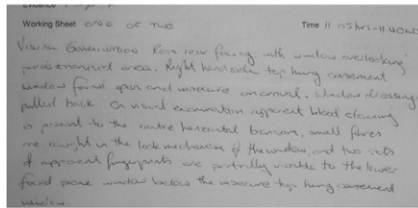 Working Sheet ONE OF TWO Time 11 05hrs-1140hrs
Visual Examination Rear facing with window overlooking
pedestrianised area. Right handside top hung casement
window found open and insecure on arrival. Window dressing
pulled back. On visual examination apparent blood staining
is present to the centre horizontal transom, small fibres
are caught in the lock mechanism of the window, and two sets
of apparent fingerprints are partially visible to the lower
fixed pane window below the insecure top hung casement
window.